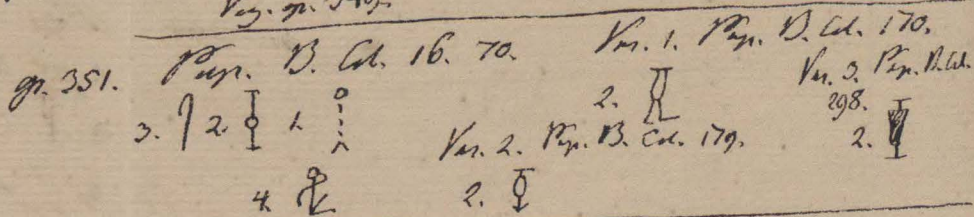 gr. 351. Pap. B. Col. 16. 70.
3. 2. 1.
4.
Var. 1. Pap. B. Col. 170.
2.
Var. 2. Pap. B. Col. 179.
2.
Var. 3. Pap. B. Col.
298.
2.